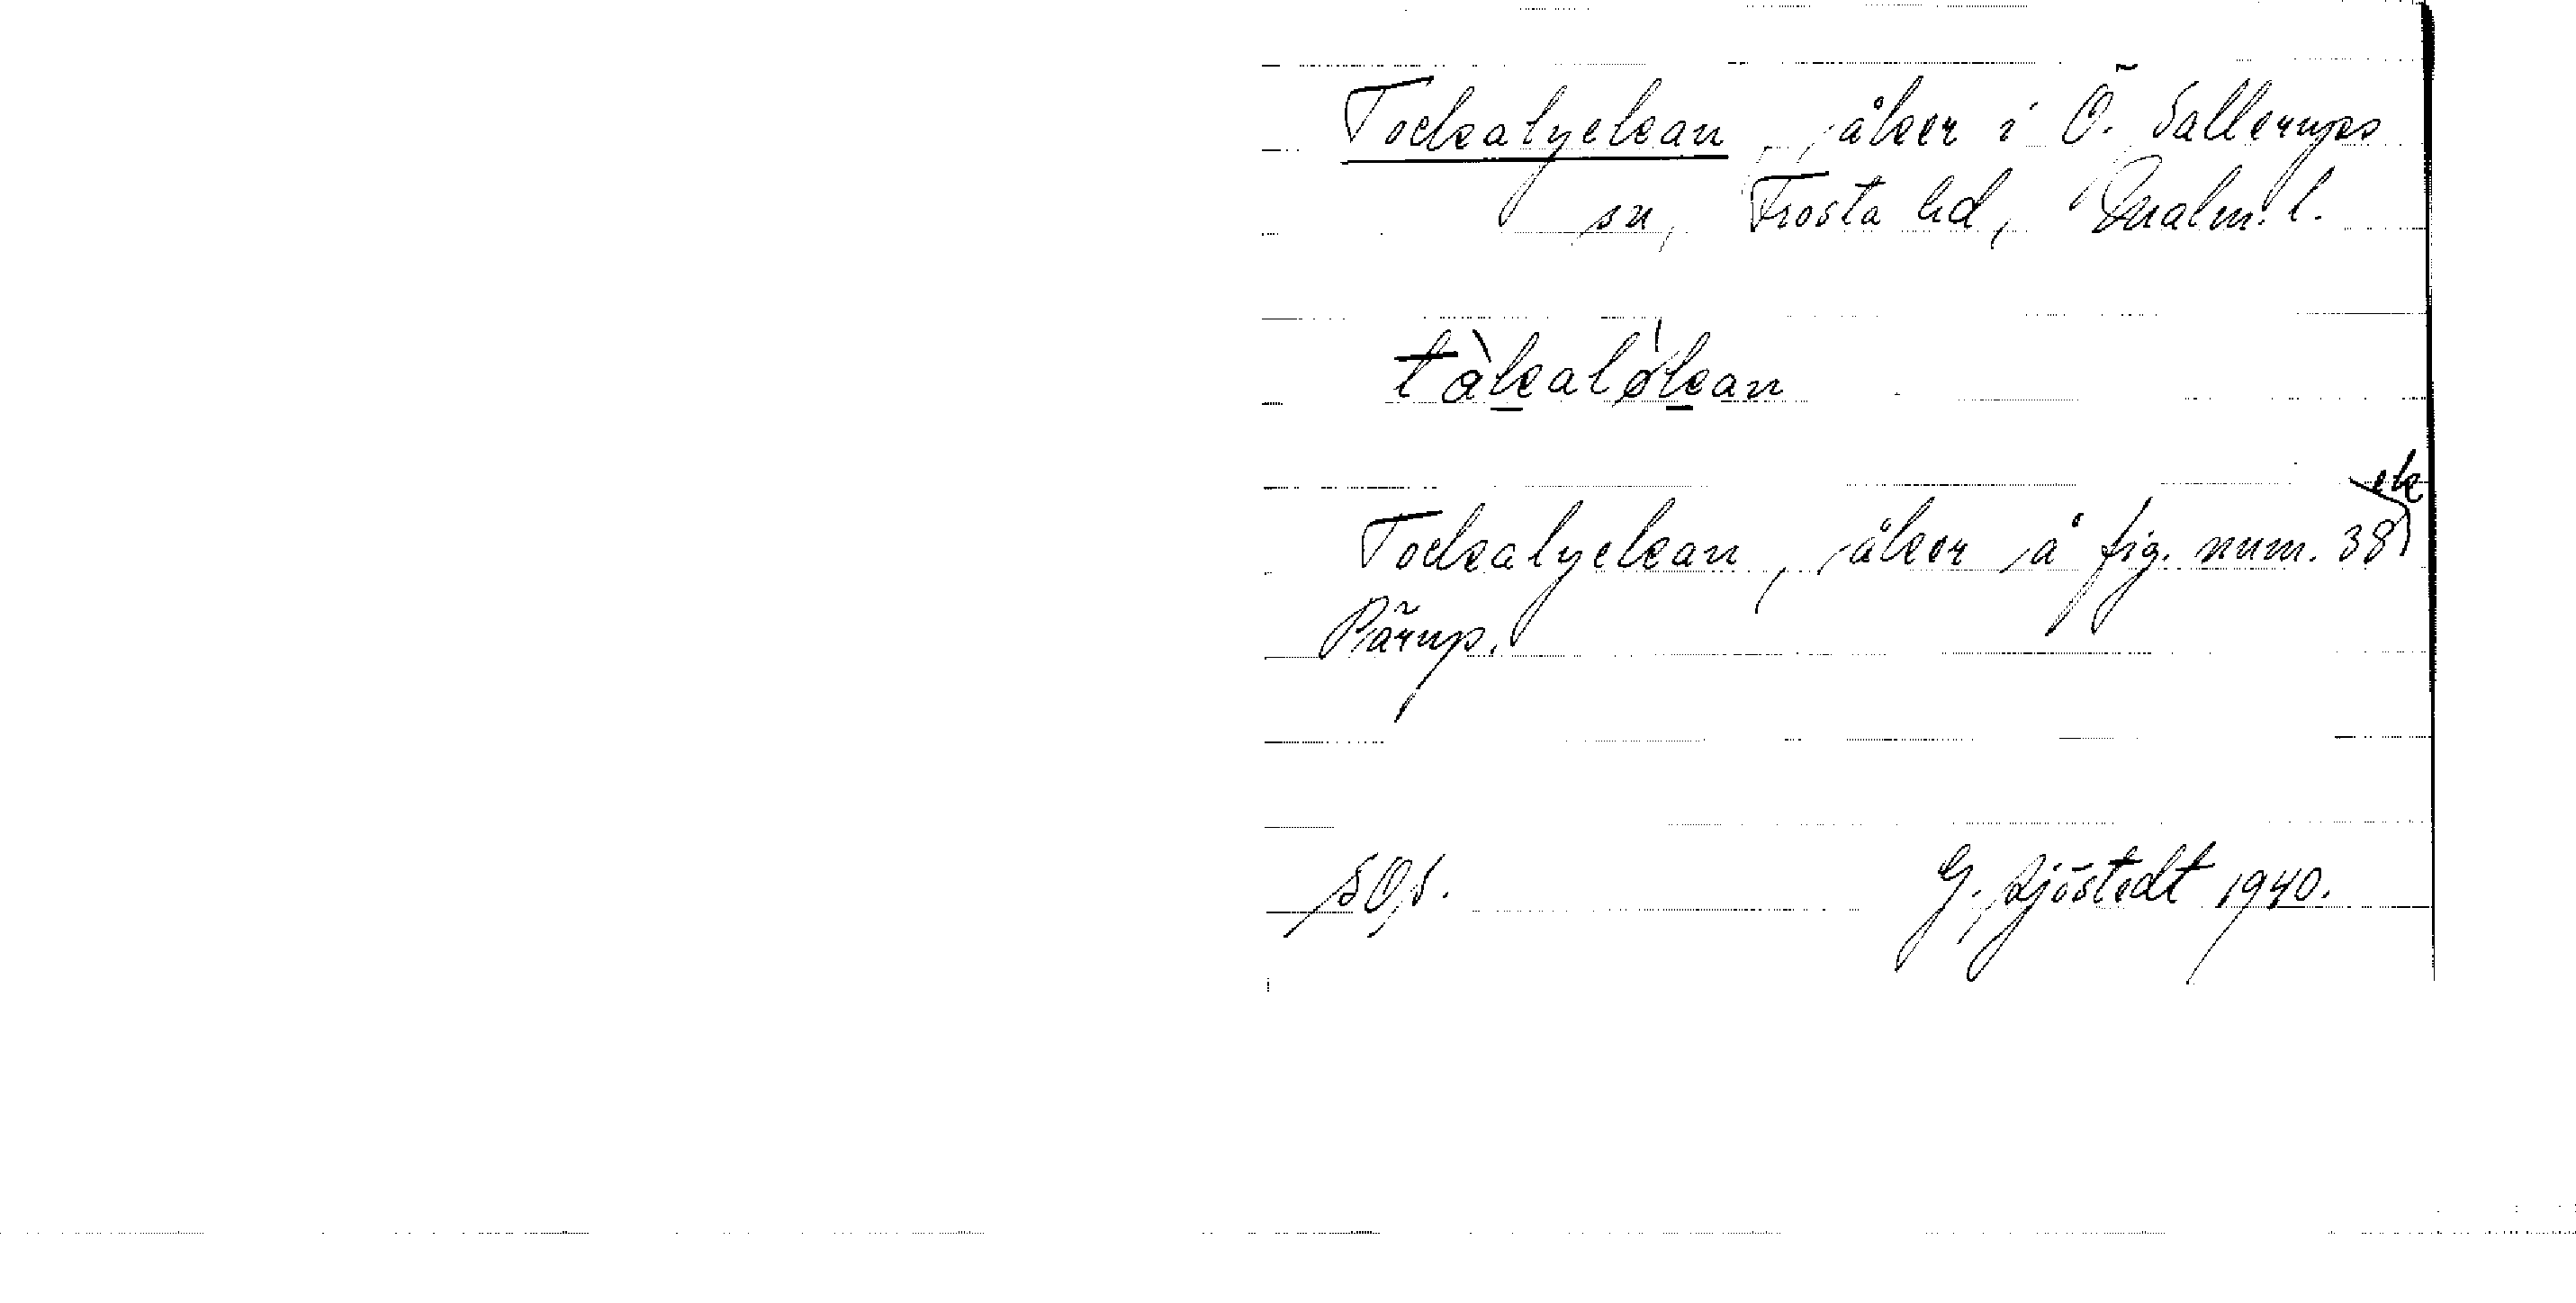 Tockalyckan, åker i Ö. Sallerups
sn, Frosta hd, Malm. l.
tåkalø̀kan
Tockalyckan, åker å fig. num. 38, ek
Pärup.
SOS.
G. Sjöstedt 1940.